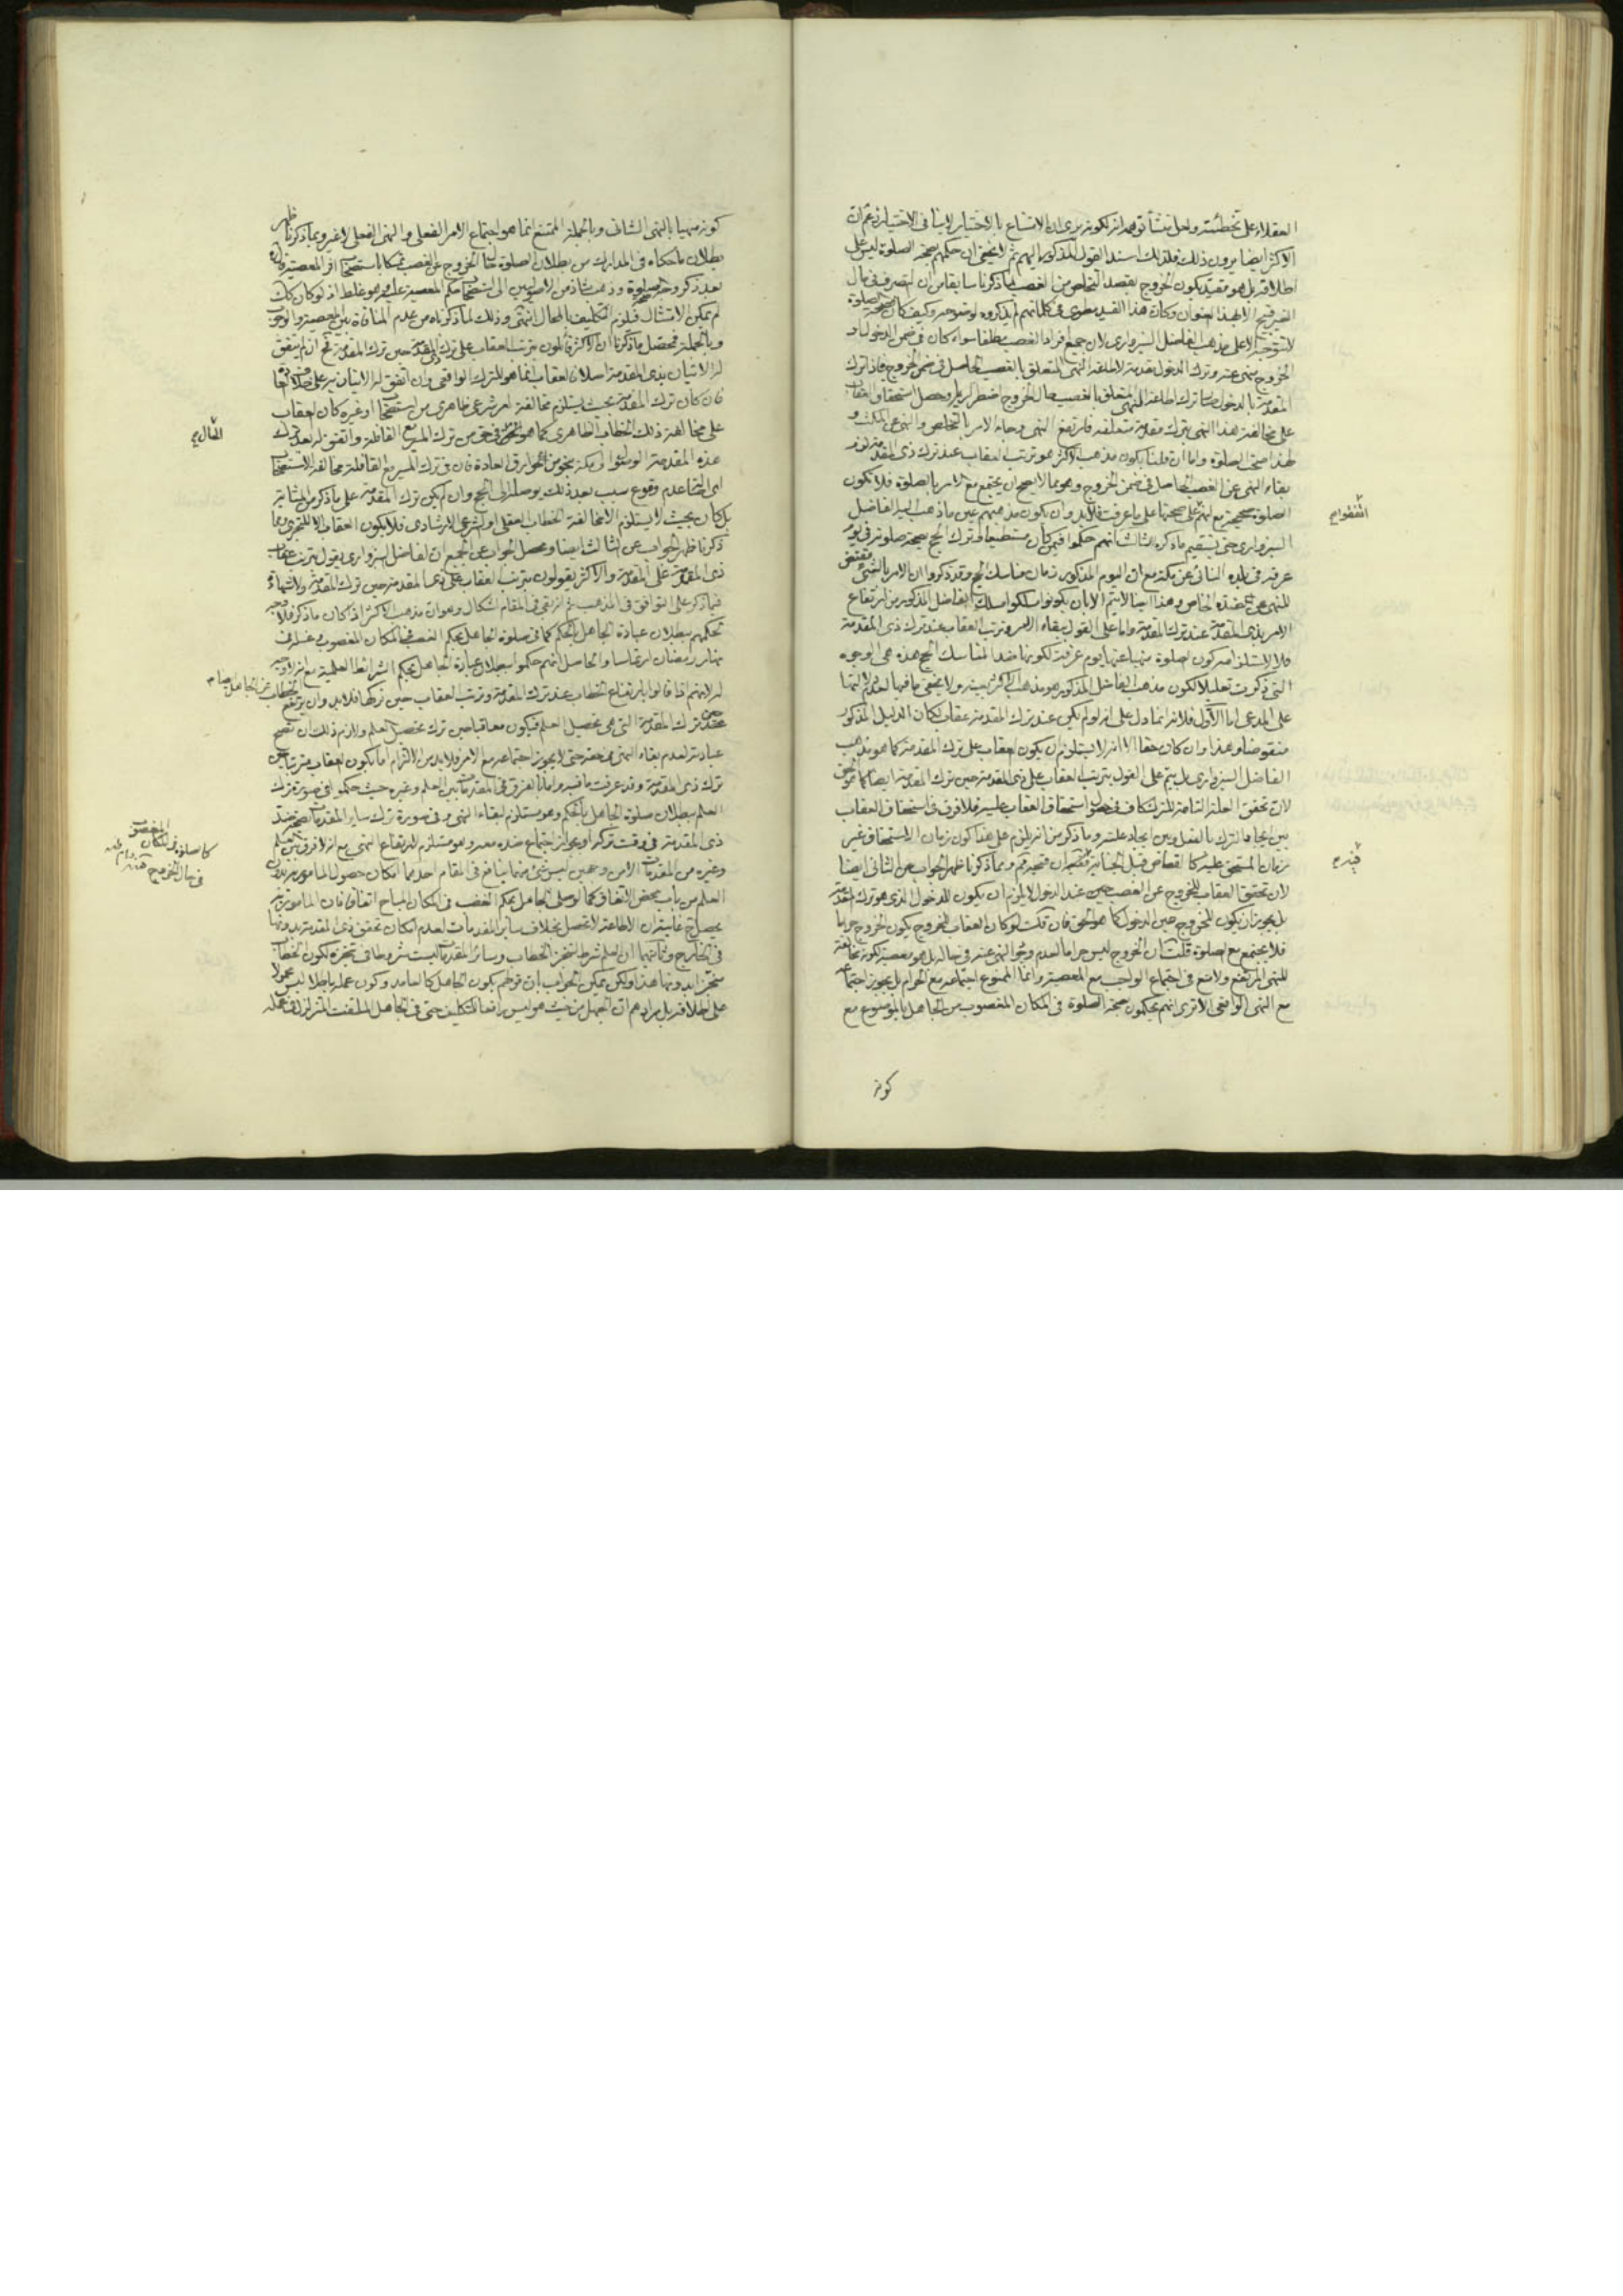 العقلاء على تخطئته ولعل منشأ توهمه انه لكونه يرى ان الامتناع بالاختيار لا ينافى الاختيار زعم ان
الاكثر ايضا يرون ذلك فلذلك اسند القول المذكور اليهم ثم لا يخفى ان حكمهم بصحة الصلوة ليس على
اطلاقه بل هو مقيد بكون الخروج بقصد التخلص من الغصب لما ذكرنا سابقا من ان التصرف فى مال
الغير قبيح الا بهذا العنوان وكان هذا القيد مطوى فى كلماتهم لم يذكروه لوضوحه وكيف كان فصحة الصلوة
لا تتوجه الا على مذهب الفاضل السبزوارى لان جميع افراد الغصب مطلقا سواء كان فى ضمن الدخول او
الخروج منهى عنه وترك الدخول مقدمة لاطاعة النهى المتعلق بالغصب الحاصل فى ضمن الخروج فاذا ترك
المقدمة بالدخول صار ترك اطاعة النهى المتعلق بالغصب حال الخروج اضطراريا وحصل استحقاق العقاب
على مخالفة هذا النهى بترك مقدمة متعلقه فارتفع النهى وجاء الامر بالتخلص والنهى عن المكث و
لهذا صحت الصلوة واما ان قلنا بكون مذهب الاكثر هو ترتب العقاب عند ترك ذى المقدمة لزم
بقاء النهى عن الغصب الحاصل فى ضمن الخروج وهو مما لا يصح ان يجتمع مع الامر بالصلوة فلا تكون
الصلوة صحيحة مع انهم على صحتها على ما عرفت فلا بد وان يكون مذهبهم عين ما ذهب اليه الفاضل
اتفقوا
السبزوارى حتى يستقيم ما ذكره الثالث انهم حكموا فيمن كان مستطيعا وترك الحج بصحة صلوته فى يوم
عرفة فى بلده النائى عن مكة مع ان اليوم المذكور زمان مناسك الحج وقد ذكروا ان الامر بالشئ مقتض
للنهى عن ضده الخاص وهذا ايضا لا يتم الا بان يكونوا سلكوا مسلك الفاضل المذكور من ارتفاع
الامر بذى المقدمة عند ترك المقدمة واما على القول ببقاء الامر وترتب العقاب عند ترك ذى المقدمة
فلا لاستلزامه كون الصلوة منهيا عنها يوم عرفة لكونها ضد المناسك الحج هذه هى الوجوه
التى ذكرت تعليلا لكون مذهب الفاضل المذكور هو مذهب الاكثر بعينه ولا يخفى ما فيها لعدم دلالتها
على المدعى اما الاول فلانه انما دل على انه لو لم يكن عند ترك المقدمة عقاب لكان الدليل المذكور
منقوضا وهذا وان كان حقا الا انه لا يستلزم ان يكون العقاب على ترك المقدمة كما هو مذهب
الفاضل السبزوارى بل يتم على القول بترتب العقاب على ذى المقدمة حين ترك المقدمة ايضا كما هو الحق
لان تحقق العلة التامة للترك كاف فى حصول استحقاق العقاب عليه فلا فرق فى استحقاق العقاب
بين ايجاد الترك بالفعل وبين ايجاد علته وما ذكر من انه يلزم على هذا كون زمان الاستحقاق غير
زمان المستحق عليه كالقصاص قبل الجناية وبما ذكرنا ظهر الجواب عن الثانى ايضا
لان تحقق العقاب للخروج عن الغصب حين عند الدخول لا يلزم ان يكون للدخول الذى هو ترك المقدمة
بل يجوز ان يكون للخروج حين الدخول كما هو الحق فان قلت لو كان العقاب للخروج يكون الخروج حراما
فلا يجتمع مع الصلوة قلت ان الخروج ليس حراما لعدم وجود النهى عنه فى حاله بل هو معصية لكونه مخالفة
للنهى المرتفع ولا منع فى اجتماع الواجب مع المعصية وانما الممنوع اجتماعه مع الحرام بل يجوز اجتماعه
مع النهى الواقعى الا ترى انهم يحكمون بصحة الصلوة فى المكان المغصوب من الجاهل بالموضوع مع
كونه
كونه منهيا بالنهى الشانى وبالجملة الممتنع انما هو اجتماع الامر الفعلى والنهى الفعلى لا غير وبما ذكرنا ظهر
بطلان ما حكاه فى المدارك من بطلان الصلوة حال الخروج عن الغصب تمسكا باستصحاب اثر المعصية
بعد ذكر وجه صحة الصلوة وذهب شاذ من الاصوليين الى استصحاب حكم المعصية عليه وهو غلط اذ لو كان كك
لم يمكن الامتثال فيلزم التكليف بالمحال انتهى وذلك لما ذكرناه من عدم المنافاة بين المعصية والوجوب
وبالجملة فمحصل ما ذكرنا ان الاكثر قائلون بترتب العقاب على ترك ذى المقدمة حين ترك المقدمة نعم ان لم يتفق
له الاتيان بذى المقدمة اصلا فالعقاب انما هو للترك الواقعى وان اتفق له الاتيان به على خلاف
فان كان ترك المقدمة بحيث يستلزم مخالفة امر شرعى ظاهرى من استصحاب او غيره كان العقاب
على مخالفة ذلك الخطاب الظاهرى كما هو فى حق من ترك المسير مع القافلة واتفق له بعد ترك
هذه المقدمة الوصول الى مكة بنحو من خوارق العادة فان فى ترك المسير مع القافلة مخالفة الاستصحاب
اى اصالة عدم وقوع سبب بعد ذلك يوصله الى الحج وان لم يكن ترك المقدمة على ما ذكر من المثابة
بل كان بحيث لا يستلزم الا مخالفة الخطاب العقلى او الشرعى الارشادى فلا يكون العقاب الا للتجرى وبما
ذكرنا ظهر الجواب عن الثالث ايضا ومحصل الجواب عن الجميع ان الفاضل السبزوارى يقول بترتب عقاب
ذى المقدمة على المقدمة والاكثر يقولون بترتب العقاب على ذى المقدمة حين ترك المقدمة ولا شهادة
فيما ذكر على التوافق فى المذهب ثم انه بقى فى المقام اشكال وهو ان مذهب الاكثر اذا كان ما ذكر فلا وجه
لحكمهم ببطلان عبادة الجاهل بالحكم كما فى صلوة الجاهل بحكم الغصب فى المكان المغصوب وغسله فى
نهار رمضان ارتماسا والحاصل انهم حكموا ببطلان عبادة الجاهل بحكم الشرائط العلمية مع انه لا وجه
له لانهم اذا قالوا بارتفاع الخطاب عند ترك المقدمة وترتب العقاب حين تركها فلا بد وان يرتفع الخطاب عن الجاهل
حين ترك المقدمة التى هى تحصيل العلم فيكون معاقبا حين ترك تحصيل العلم ولازم ذلك ان تصح
عبادته لعدم بقاء النهى فى حقه حتى لا يجوز اجتماعه مع الامر فلا بد من الالتزام اما بكون العقاب مترتبا حين
ترك ذى المقدمة وقد عرفت ما فيه واما بالفرق فى المقدمات بين العلم وغيره حيث حكموا فى صورة ترك
العلم ببطلان صلوة الجاهل بالحكم وهو مستلزم لبقاء النهى وفى صورة ترك ساير المقدمات بصحة ضد
كالصلوة فى المكان المغصوب
فى حال الخروج عنه
ذى المقدمة فى وقت تركه او بجواز اجتماع ضده معه وهو مستلزم لارتفاع النهى مع انه لا فرق بين العلم
وغيره من المقدمات الامن وجهين ليس شئ منهما ينافع فى المقام احدهما امكان حصول المامور به بدون
العلم من باب محض الاتفاق كما لو صلى الجاهل بحكم الغصب فى المكان المباح اتفاقا فان المامور به
يحصل ح غايته ان الاطاعة لا تحصل بخلاف ساير المقدمات لعدم امكان تحقق ذى المقدمة بدونها
فى الخارج وثانيهما ان العلم شرط لتنجز الخطاب وسائر المقدمات ليست شروطا فى تنجزه لكون الخطاب
منجزا بدونها هذا ولكن يمكن الجواب بان قولهم بكون الجاهل كالعامد وكون عمله باطلا ليس محمولا
على اطلاقه بل مرادهم ان الجهل من حيث هو ليس رافعا للتكليف حتى فى الجاهل الملتفت المتزلزل فى عمله